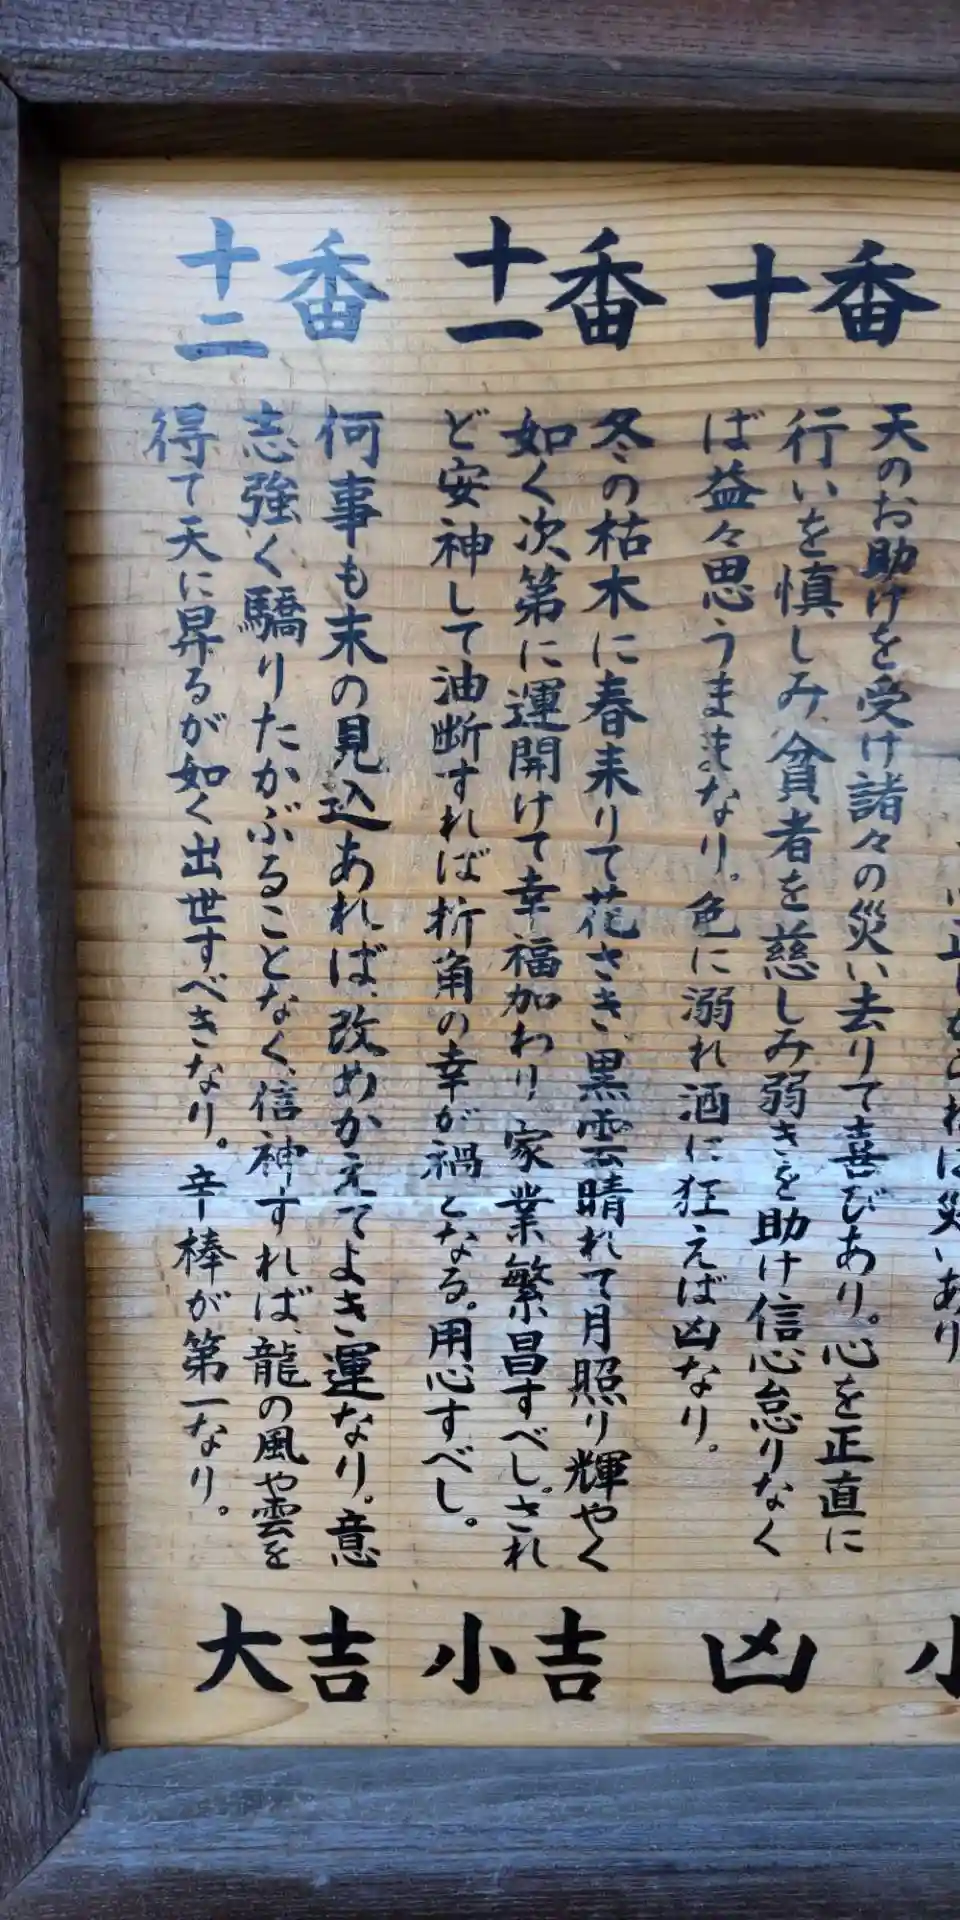 十番
天のお助けを受け諸々の災い去りて喜びあり。心を正直に
行いを慎しみ、貧者を慈しみ弱きを助け信心怠りなく
ば益々思うままなり。色に溺れ酒に狂えば凶なり。
凶
十一番
冬の枯木に春来りて花さき、黒雲晴れて月照り輝やく
如く次第に運開けて幸福加わり、家業繁昌すべし。され
ど安神して油断すれば折角の幸が禍となる。用心すべし。
小吉
十二番
何事も末の見込あれば、改めかえてよき運なり。意
志強く驕りたかぶることなく、信神すれば、龍の風や雲を
得て天に昇るが如く出世すべきなり。辛棒が第一なり。
大吉